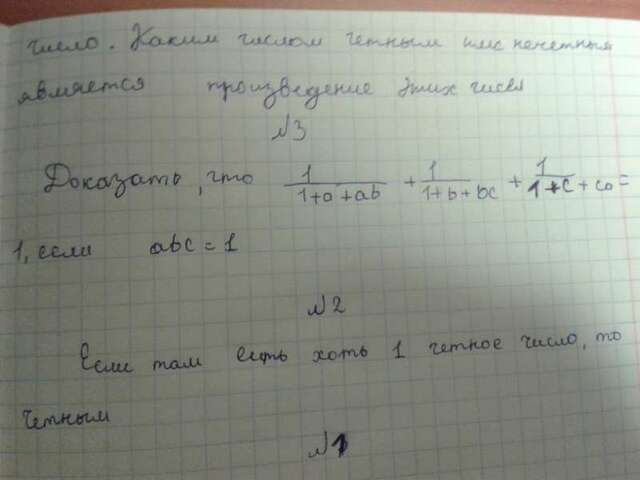 число. Каким числом четным или нечетным
является произведение этих чисел
№3
Доказать, что 1/(1+a+ab) + 1/(1+b+bc) + 1/(1+c+ca) =
1, если abc = 1
№2
Если там есть хоть 1 четное число, то
четным
№1